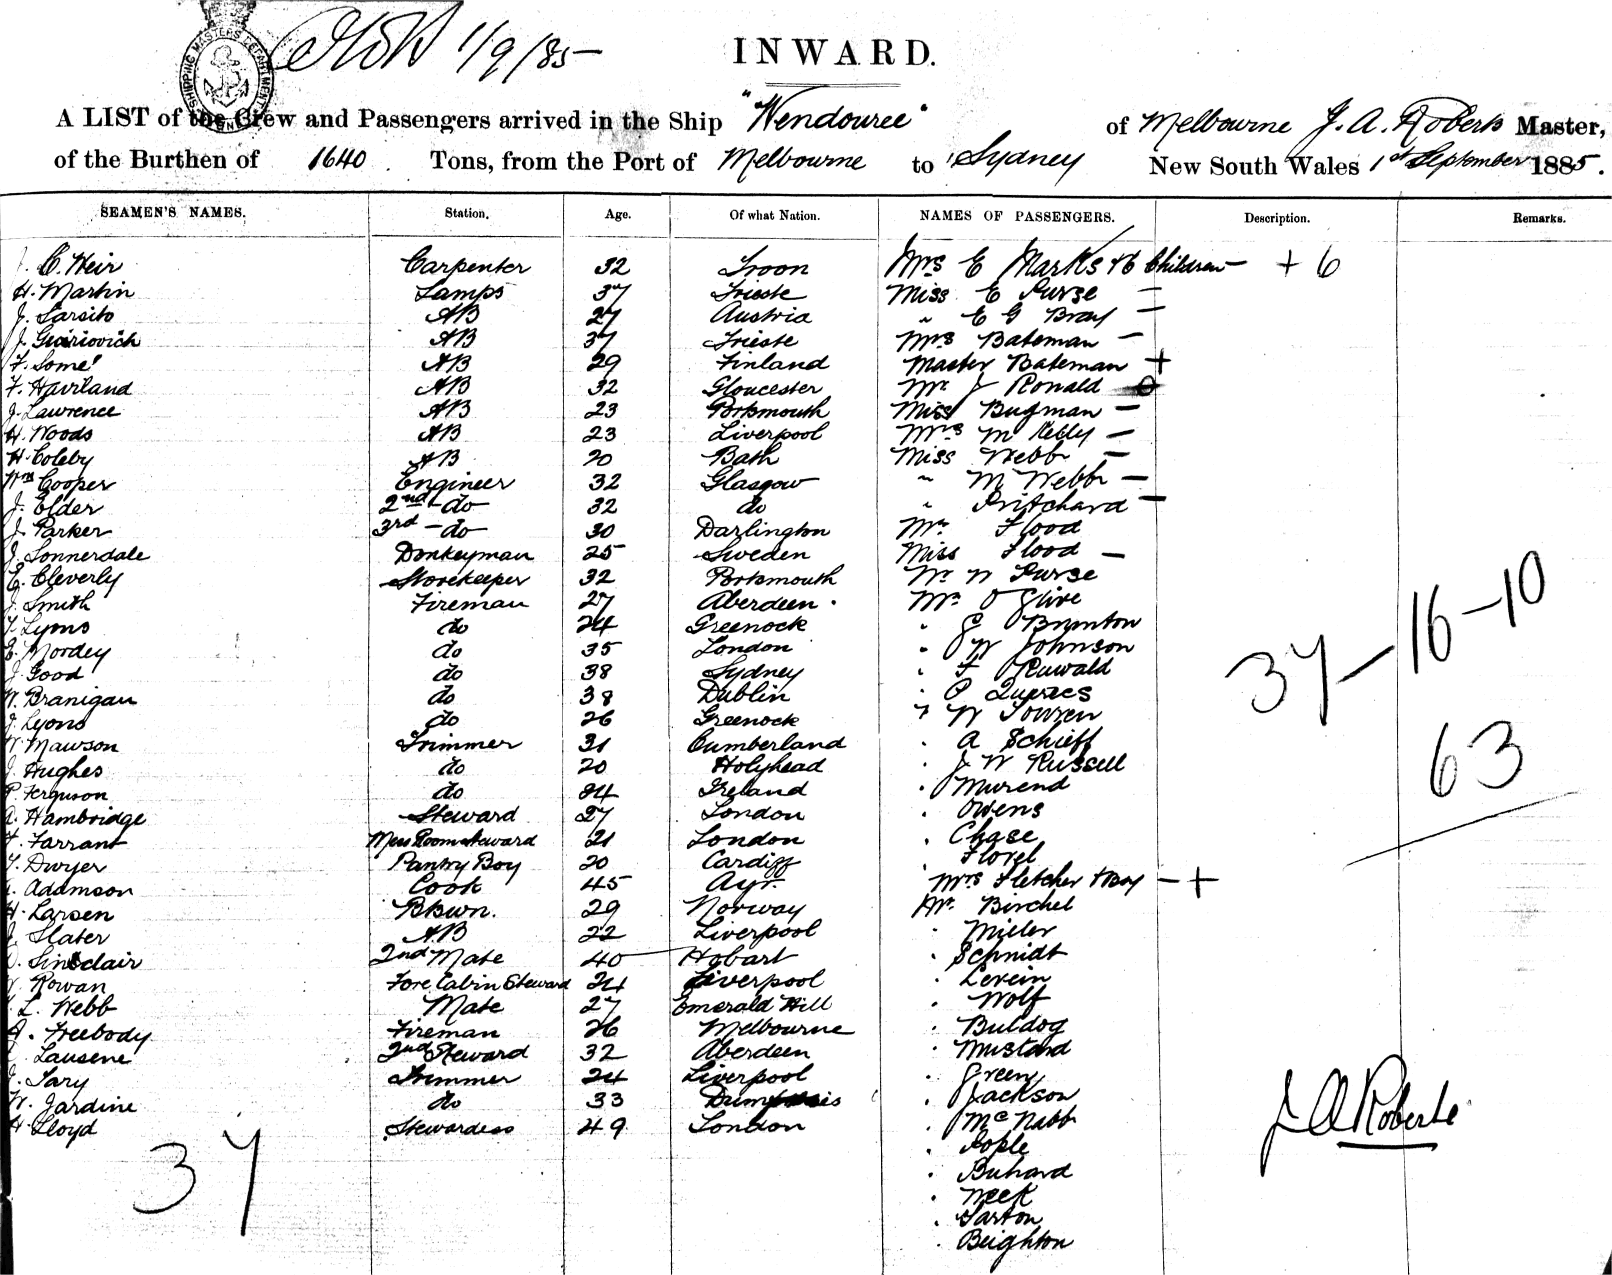 SHIPPING MASTERS DEPARTMENT
1/9/85
INWARD.
A LIST of the Crew and Passengers arrived in the Ship "Wendouree" of Melbourne J. A. Roberts Master,
of the Burthen of 1640 Tons, from the Port of Melbourne to Sydney New South Wales 1st September 1885.
SEAMEN'S NAMES. Station. Age. Of what Nation. NAMES OF PASSENGERS. Description. Remarks.
C. Weir Carpenter 32 Troon Mrs E Marks & 6 Children — + 6
H. Martin Lamps 37 Trieste Miss E Purse —
J. Sarsito AB 27 Austria " E G Bray —
J. AB 37 Trieste Mrs Bateman —
F. Some AB 29 Finland Master Bateman +
F. Haviland AB 32 Gloucester Mr J Ronald
J. Lawrence AB 23 Portsmouth Miss Bugman —
H. Woods AB 23 Liverpool Mrs M Kelly —
H. Coleby AB 20 Bath Miss Webb —
Wm Cooper Engineer 32 Glasgow " M Webb —
J. Elder 2nd do 32 do " Pritchard —
J. Parker 3rd — do 30 Darlington Mr Flood
J. Sonnerdale Donkeyman 25 Sweden Miss Flood —
E. Cleverly Storekeeper 32 Portsmouth Mr W Purse
J. Smith Fireman 27 Aberdeen Mr O Olive
T. Lyons do 24 Greenock " G Brunton
E. Mordey do 35 London " W Johnson
J. Good do 38 Sydney " F Ruwald
W. Branigan do 38 Dublin " P
J. Lyons do 26 Greenock " W
W. Mawson Trimmer 31 Cumberland " A Schieff
J. Hughes do 20 Holyhead " J W Russell
P. Ferguson do 24 Ireland " Murend
A. Hambridge Steward 27 London " Owens
F. Farrant Mess Room Steward 21 London " Chase
T. Dwyer Pantry Boy 20 Cardiff " Florel
Adamson Cook 45 Ayr. Mrs Fletcher & Boy — +
H. Larsen Bkswn. 29 Norway Mr Birchel
J. Slater AB 22 Liverpool " Miller
D. Sinclair 2nd Mate 40 Hobart " Schmidt
W. Rowan Fore Cabin Steward 24 Liverpool " Levein
L. Webb Mate 27 Emerald Hill " Wolf
A. Freebody Fireman 26 Melbourne " Buldog
Lausene 2nd Steward 32 Aberdeen " Mustard
J. Tary Trimmer 24 Liverpool " Green
W. Jardine do 33 " Jackson
H. Lloyd Stewardess 49 London " McNabb
" Pople
" Buhard
" Meek
" Sarton
" Beighton
37
37 — 16 — 10
63
J A Roberts